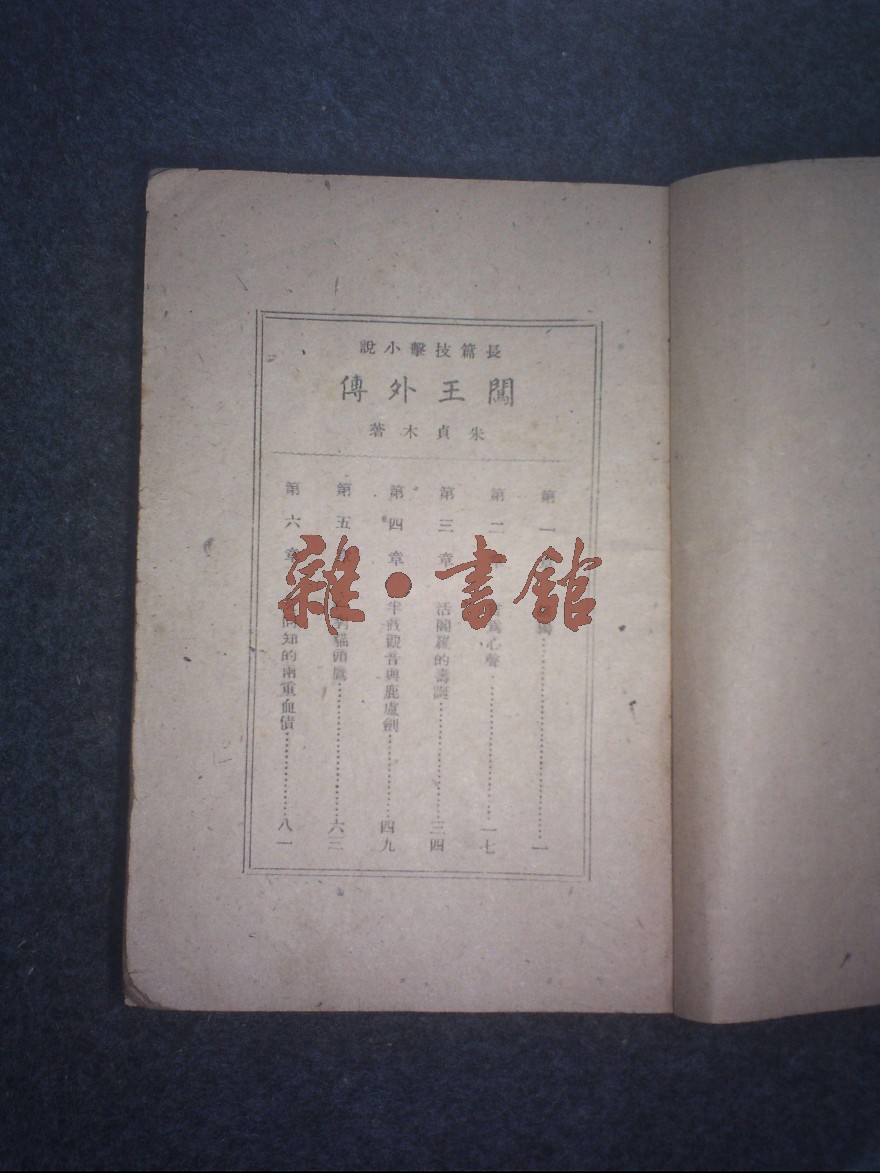 長篇技擊小說
闖王外傳
朱貞木著
第一 ……………… 一
第二 為心聲……………… 一七
第三章 活閻羅的壽誕……………… 三四
第四章 半截觀音與鹿盧劍……………… 四九
第五 貓頭鷹……………… 六三
第六章 同知的兩重血債……………… 八一
雜·書館